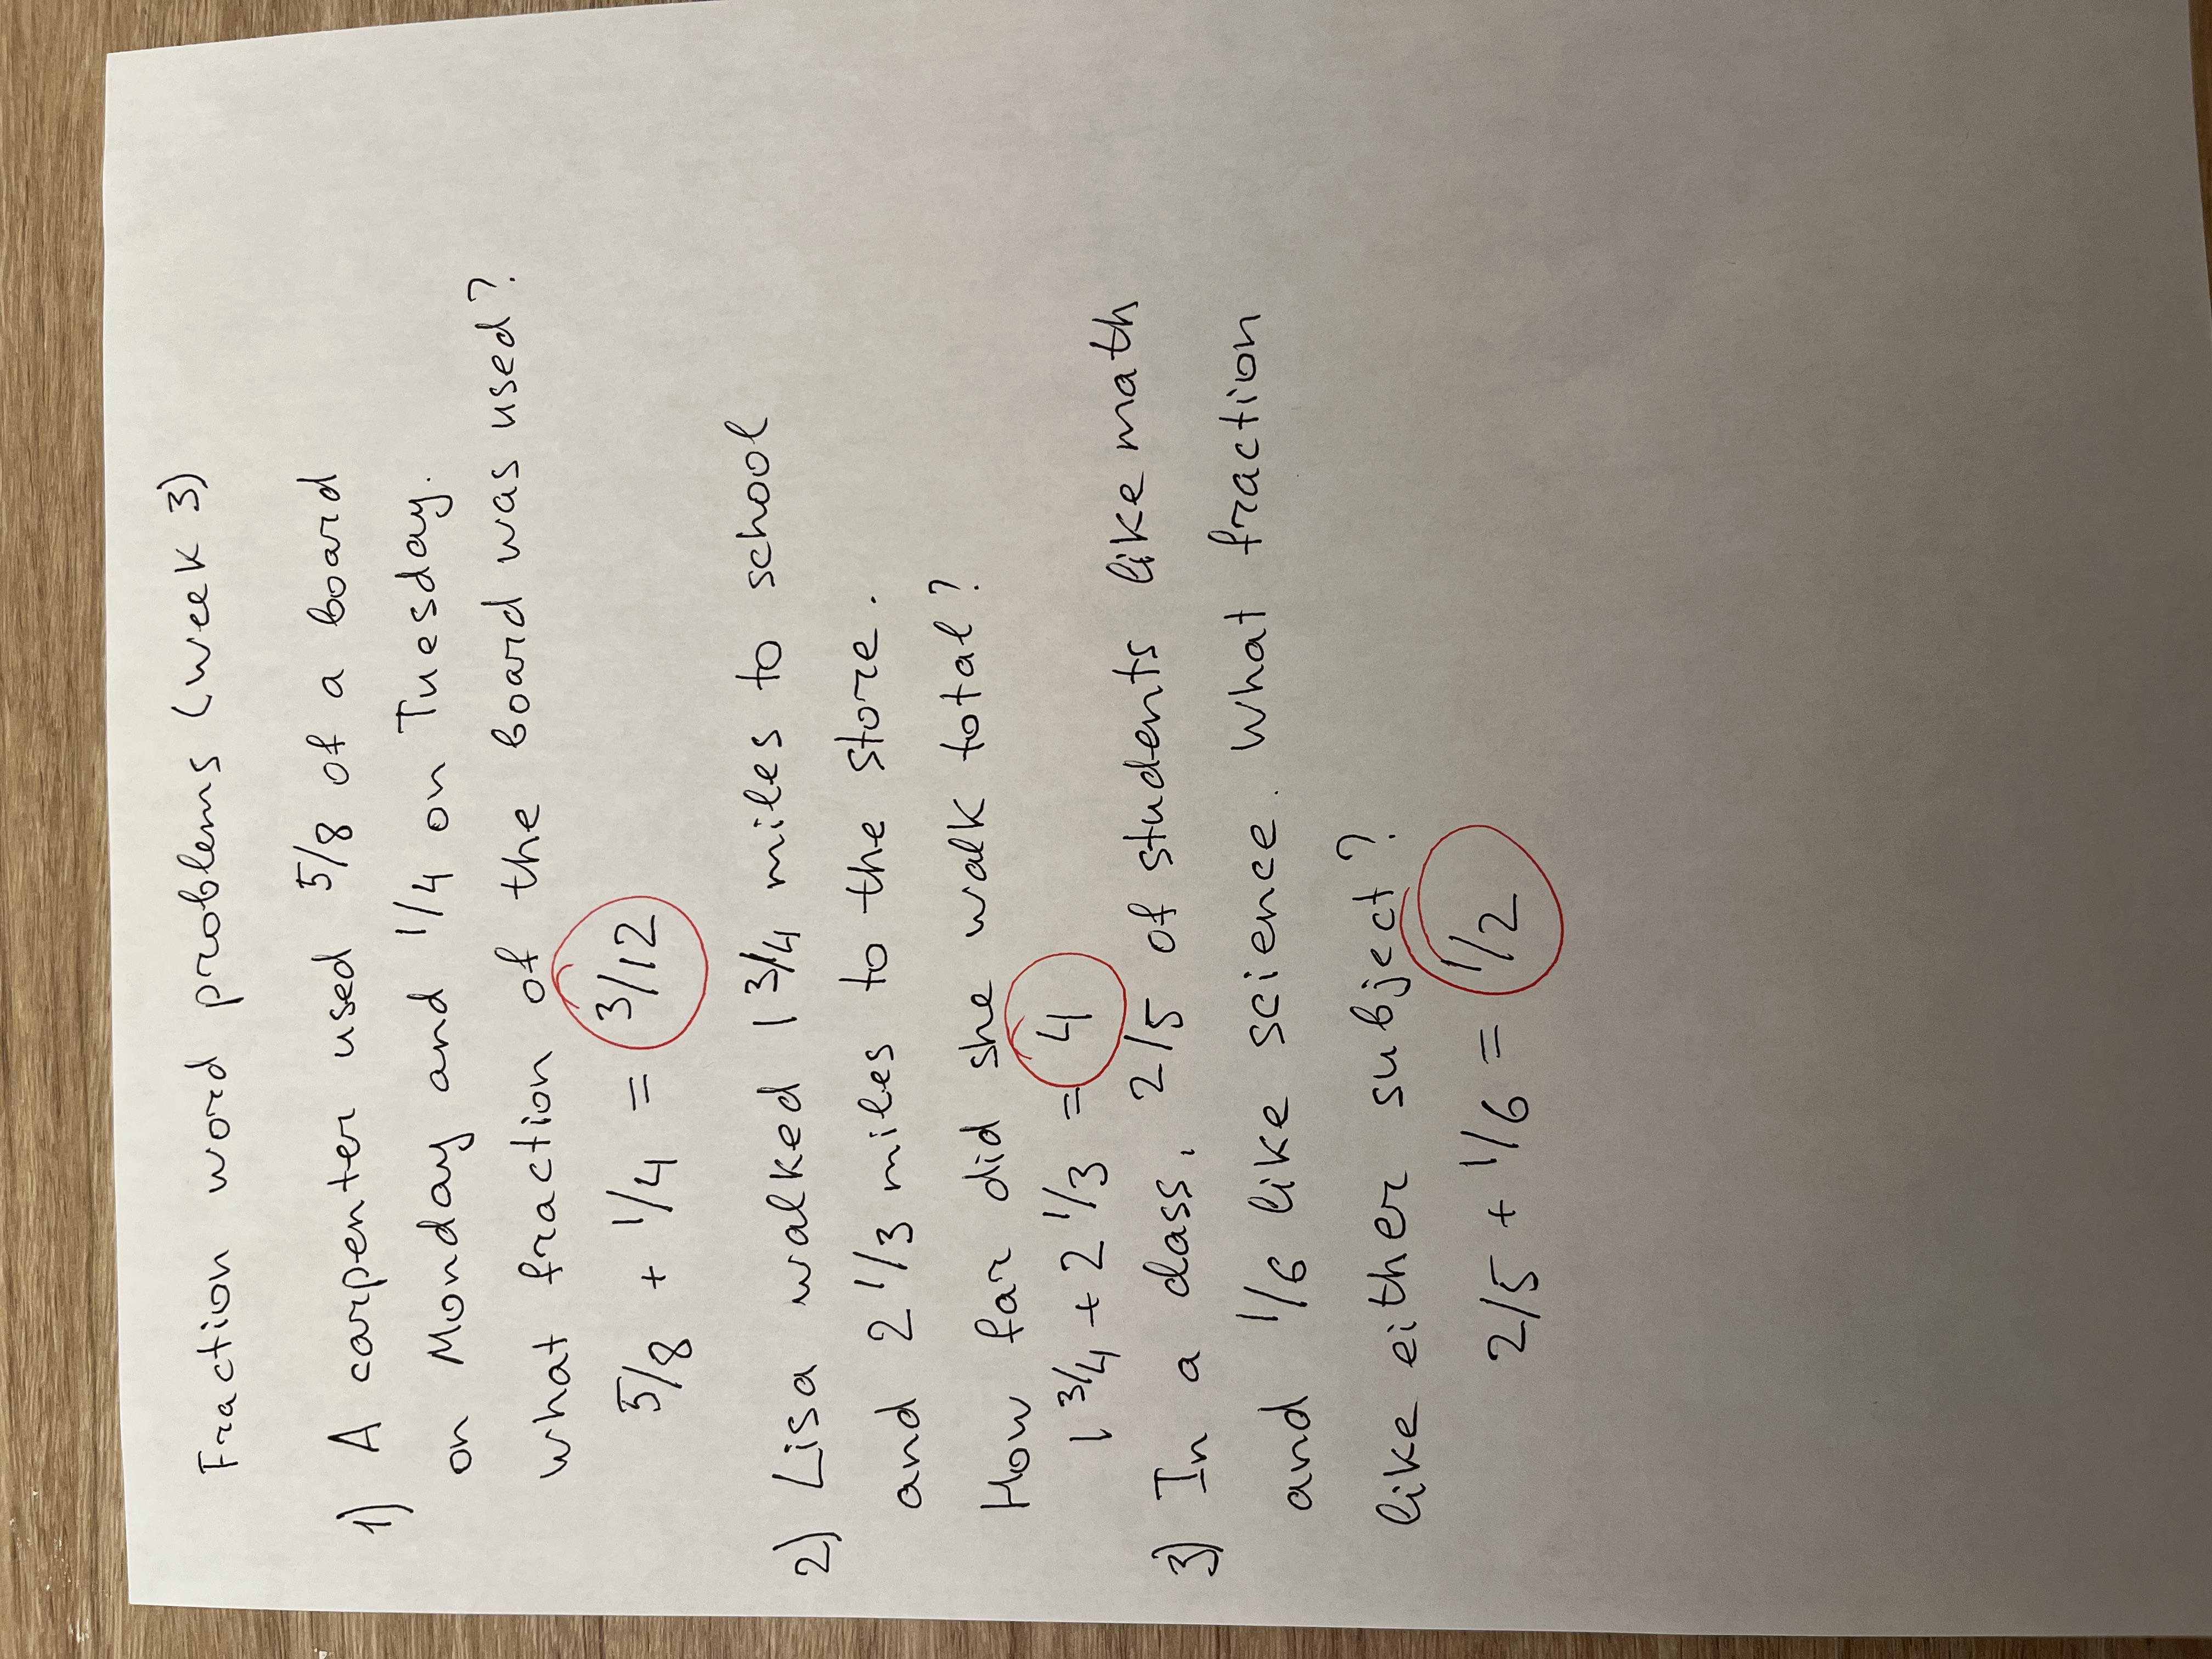 Fraction word problems (week 3)
1) A carpenter used 5/8 of a board
on Monday and 1/4 on Tuesday.
What fraction of the board was used?
5/8 + 1/4 = 3/12
2) Lisa walked 1 3/4 miles to school
and 2 1/3 miles to the store.
How far did she walk total?
1 3/4 + 2 1/3 = 4
3) In a class, 2/5 of students like math
and 1/6 like science. What fraction
like either subject?
2/5 + 1/6 = 1/2